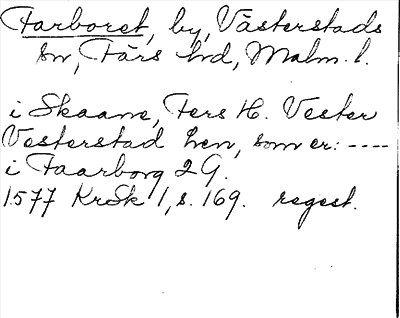 Farboret, by, Västerstads
sn, Färs hd, Malm. l.
i Skaane, Fers H. Vester
Vesterstad len, som er: ----
i Faarborg 2 G.
1577 KrSk 1, s. 169. regest.